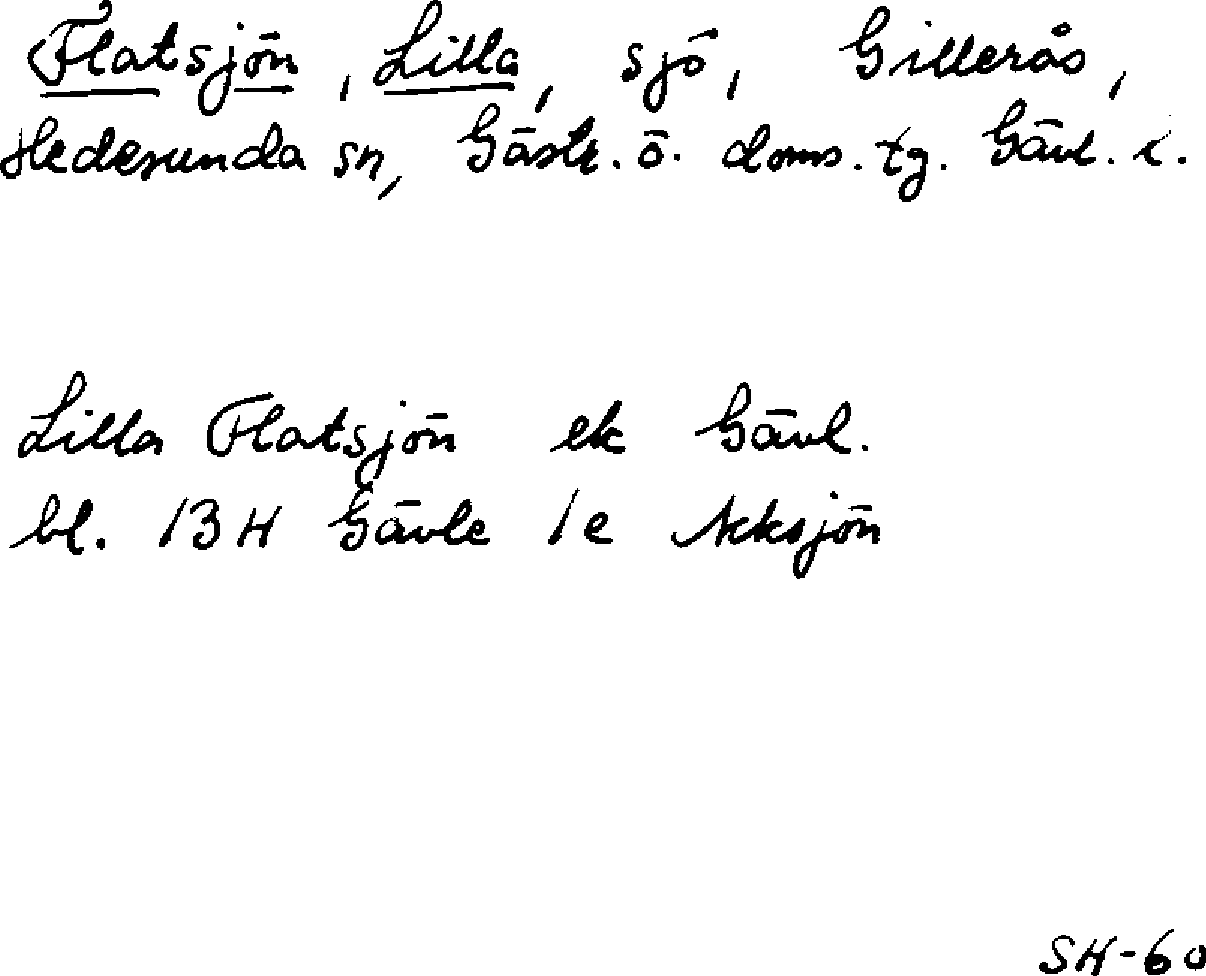 Flatsjön, Lilla, sjö, Gillerås,
Hedesunda sn, Gästr. ö. doms. tg. Gävl. l.
Lilla Flatsjön ek Gävl.
bl. 13H Gävle 1e Akksjön
SH-60